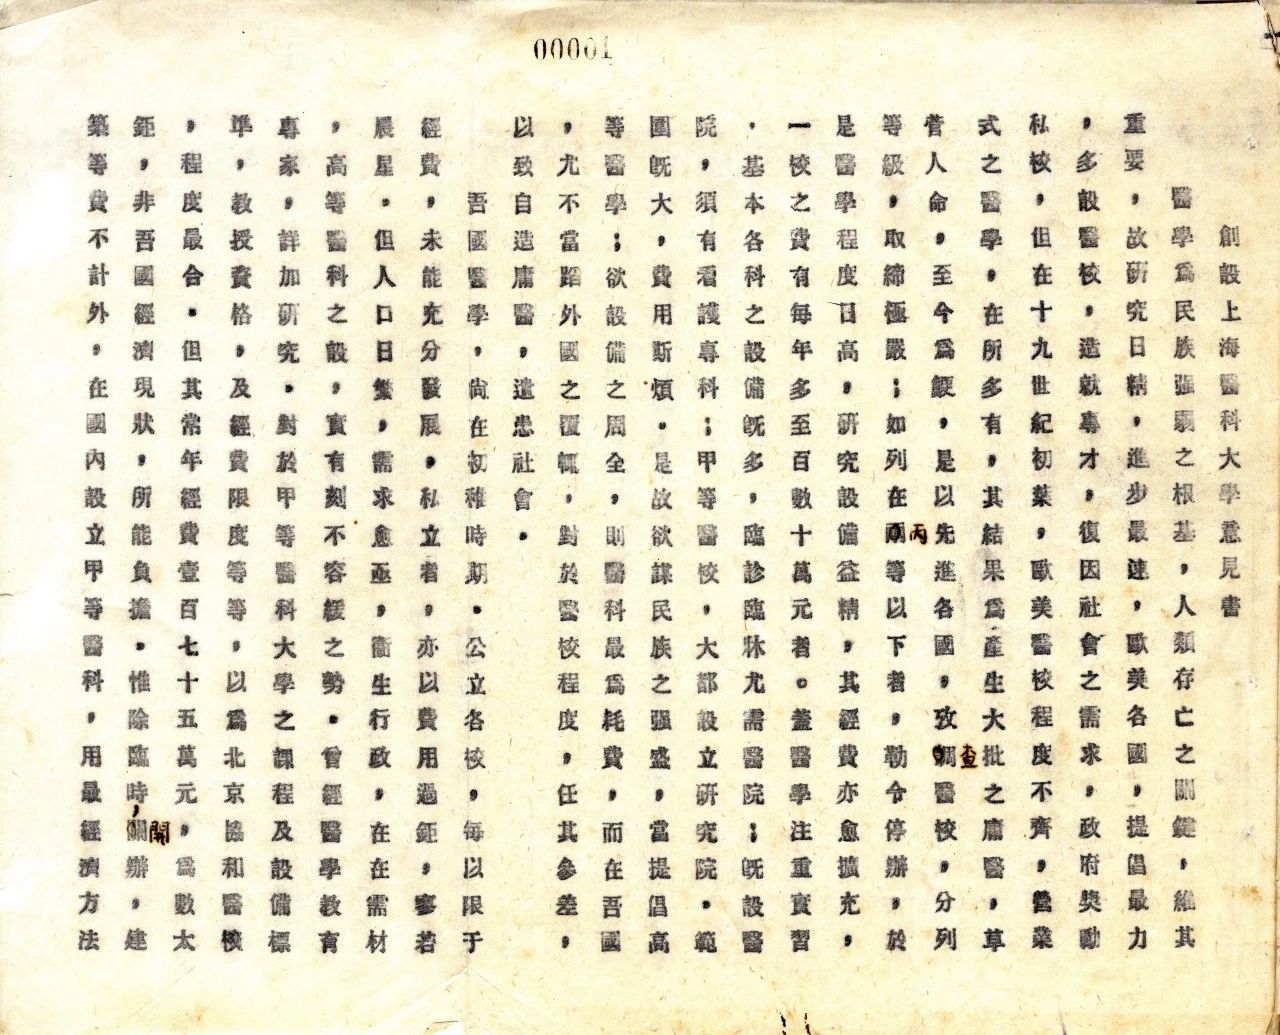 00001
創設上海醫科大學意見書
醫學爲民族强弱之根基，人類存亡之關鍵，維其
重要，故研究日精，進步最速，歐美各國，提倡最力
，多設醫校，造就專才，復因社會之需求，政府奬勵
私校，但在十九世紀初葉，歐美醫校程度不齊，營業
式之醫學，在所多有，其結果爲產生大批之庸醫，草
菅人命，至今爲鯁，是以先進各國，攷調查醫校，分列
等級，取締極嚴；如列在丙等以下者，勒令停辦，於
是醫學程度日高，研究設備益精，其經費亦愈擴充，
一校之費有每年多至百數十萬元者。蓋醫學注重實習
．基本各科之設備旣多，臨診臨牀尤需醫院；旣設醫
院，須有看護專科；甲等醫校，大都設立研究院．範
圍旣大，費用斯煩．是故欲謀民族之强盛，當提倡高
等醫學；欲設備之周全，則醫科最爲耗費，而在吾國
，尤不當蹈外國之覆轍，對於醫校程度，任其參差，
以致自造庸醫，遺患社會．
吾國醫學，尚在初稚時期．公立各校，每以限于
經費，未能充分發展．私立者，亦以費用過鉅，寥若
晨星．但人口日繁，需求愈亟，衞生行政，在在需材
，高等醫科之設，實有刻不容緩之勢．曾經醫學教育
專家，詳加研究．對於甲等醫科大學之課程及設備標
準，教授資格，及經費限度等等，以爲北京協和醫校
，程度最合．但其常年經費壹百七十五萬元，爲數太
鉅，非吾國經濟現狀，所能負擔．惟除臨時，開辦，建
築等費不計外，在國內設立甲等醫科，用最經濟方法